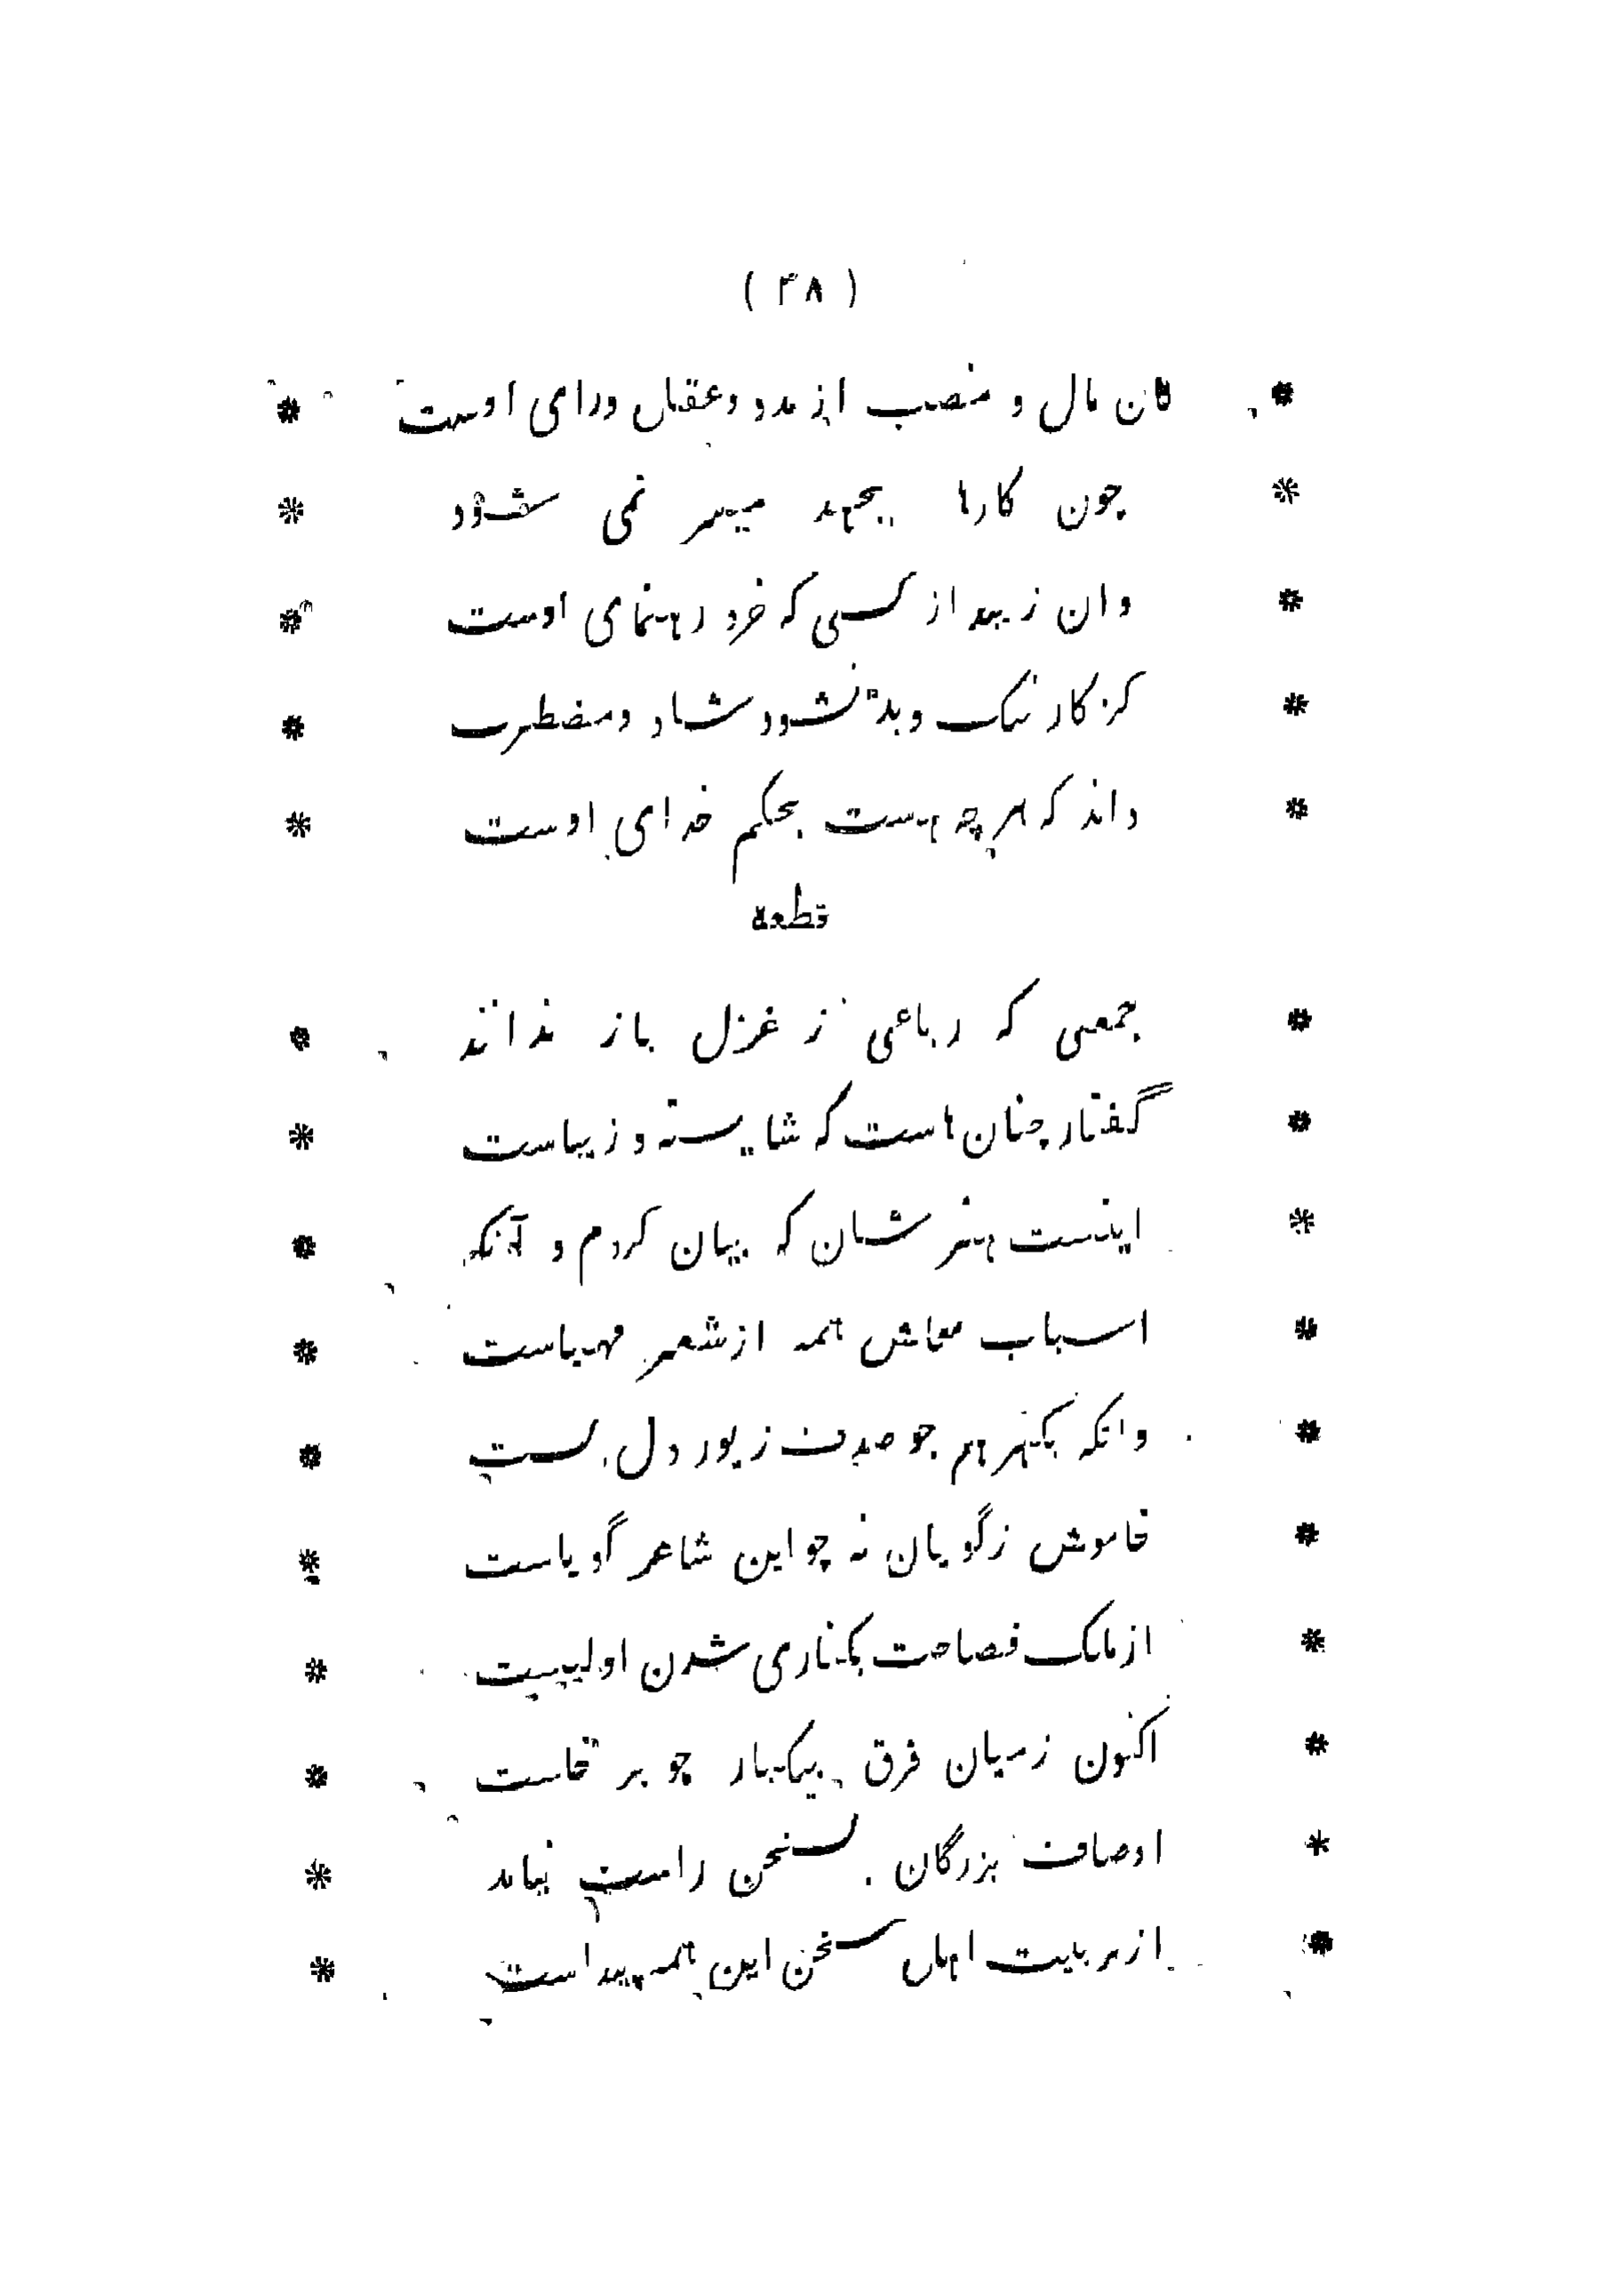 ( ۴۸ )
* کان مال و منصب از مدد و عقل ورای اوست *
* چون کارها بجهد میسر نمی شود *
* وان زیبد از کسی که خرد رهنمای اوست *
* کز کار نیک و بد نشود شاد و مضطرب *
* داند که هر چه هست بحکم خدای اوست *
قطعه
* جمعی که رباعی ز غزل باز ندانند *
* گفتار چنان هاست که شایسته و زیباست *
* اینست هنر شان که بیان کردم و آنکه *
* اسباب معاش همه از شعر مهیاست *
* وانکه بگهر هم جو صدف زیور دل *
* خاموش زگویان نه چو این شاعر گویاست *
* از ملک فصاحت بکناری شدن اولیست *
* اکنون زمیان فرق بیکبار چو بر خاست *
* اوصاف بزرگان سخن راست نیاید *
* از تربیت اهل سخن این همه پیداست *